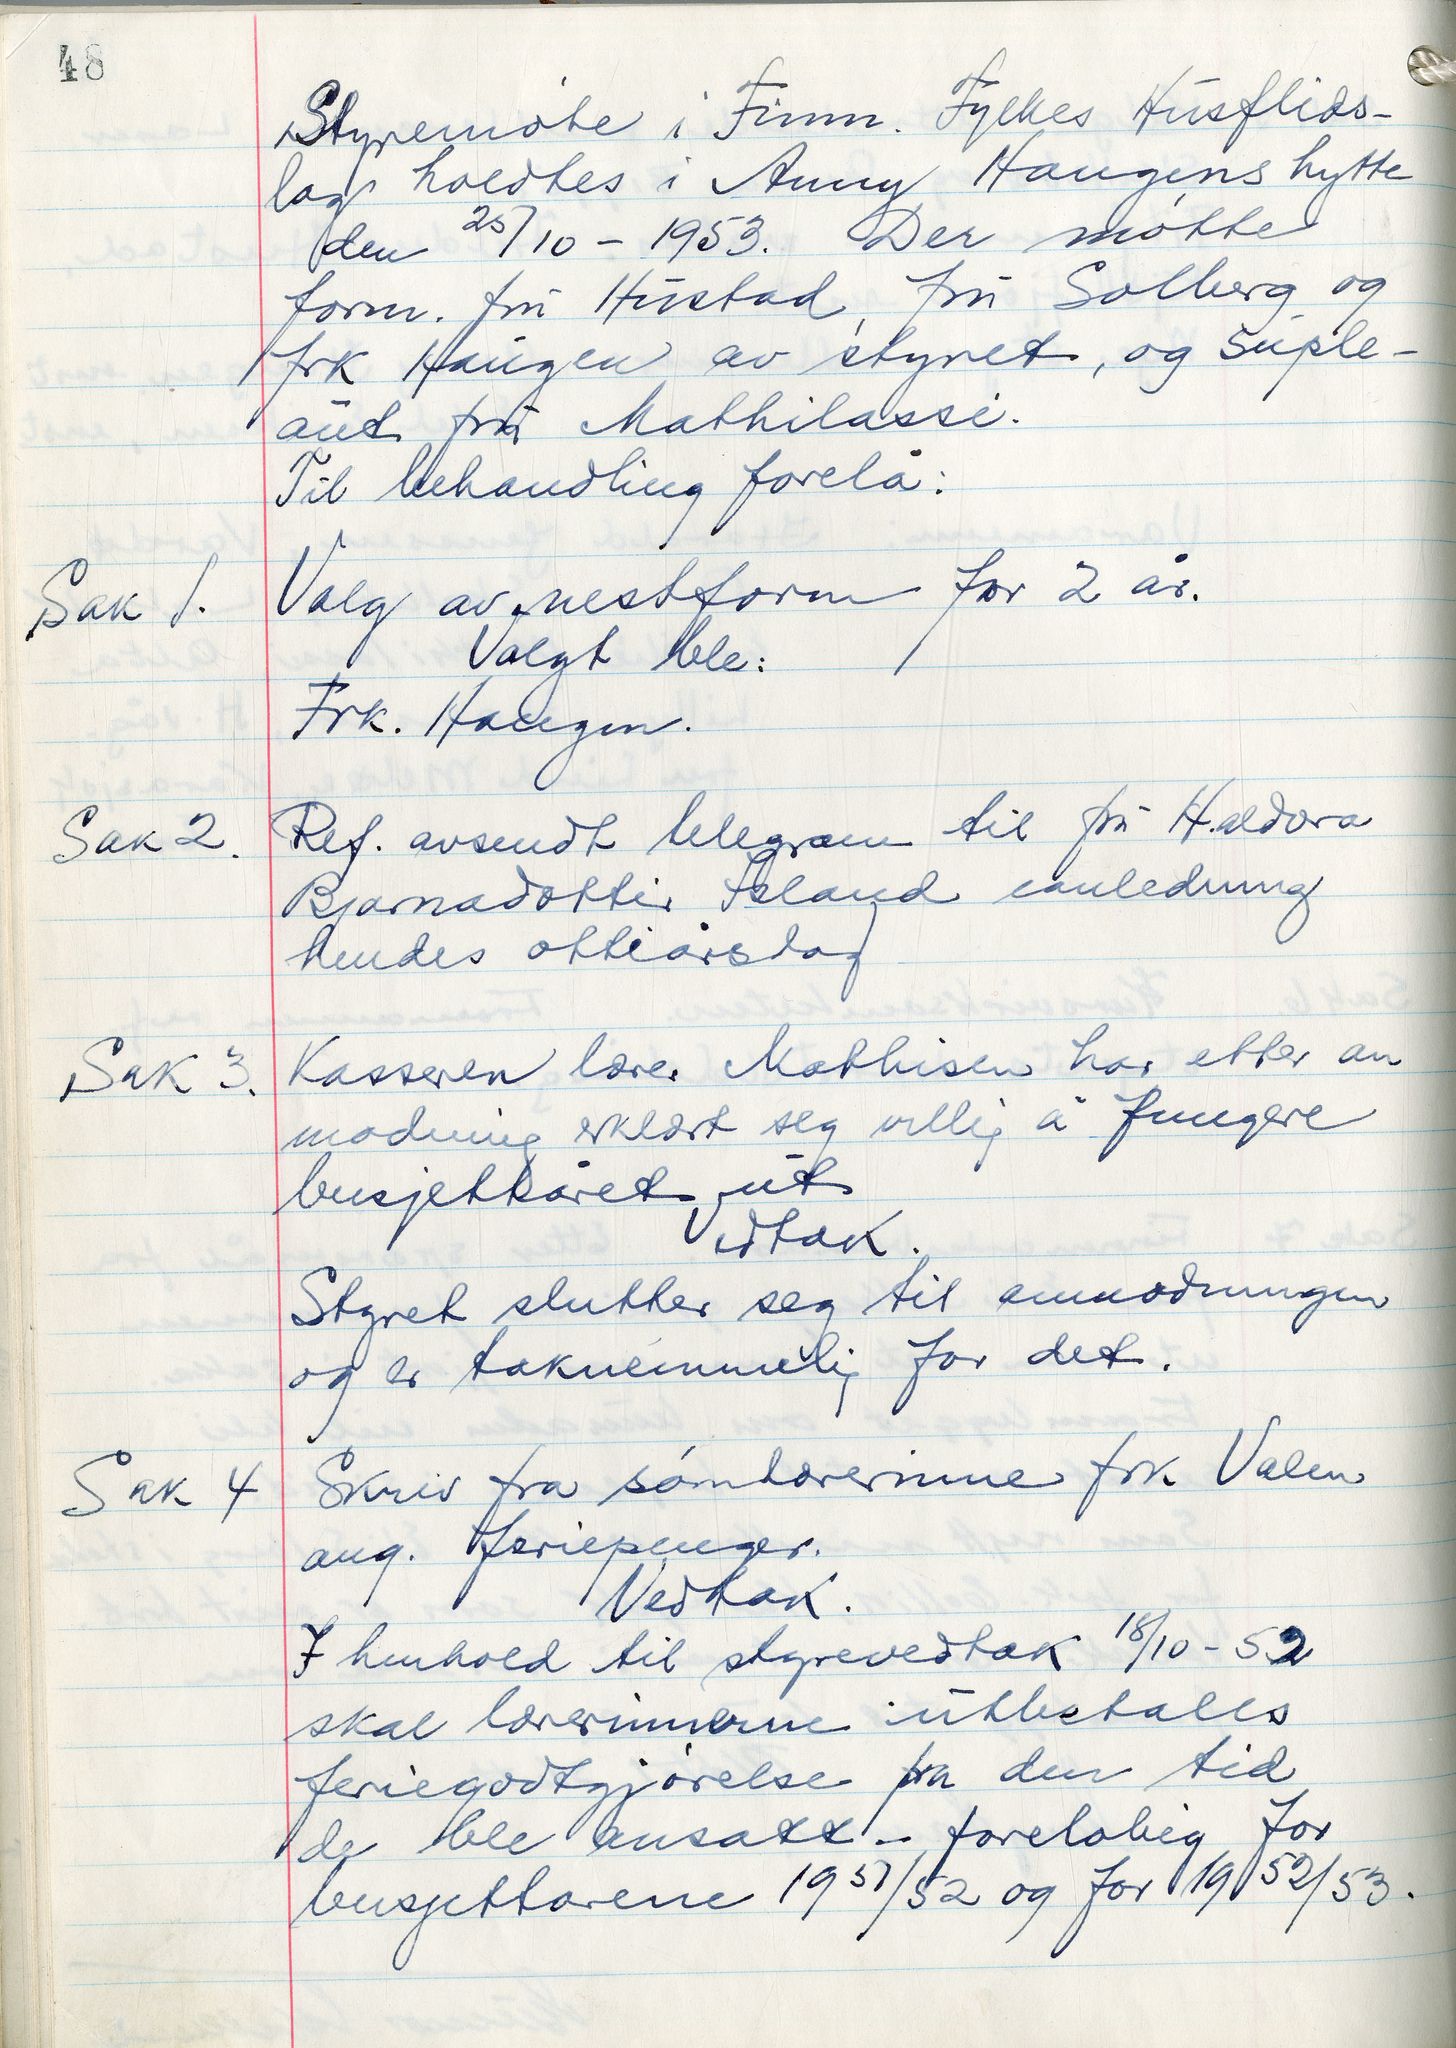 48
Styremöte i Finnm. Fylkes Husflids-
lag holdtes i Anny Haugens hytte
den 25/10 - 1953. Der møtte
form. fru Hustad, fru Solberg og
frk Haugen av styret, og suple-
ant fru Mathilassi.
Til behandling forelå:
Sak 1. Valg av nestform for 2 år.
Valgt ble:
Frk. Haugen.
Sak 2. Ref. avsendt telegram til fru Haldora
Bjarnadottir Island i anledning
hendes ottiårsdag
Sak 3. Kasseren lærer Mathisen har etter an
modning erklært seg villig å fungere
busjettåret ut
Vedtak.
Styret slutter seg til anmodningen
og er taknemmelig for det.
Sak 4 Skriv fra sömlærerinne frk Valen
ang. feriepenger.
Vedtak.
I henhold til styrevedtak 18/10 - 52
skal lærerinnerne utbetales
feriegodtgjörelse fra den tid
de ble ansatt - forelöbig for
busjettårene 1951/52 og for 1952/53.